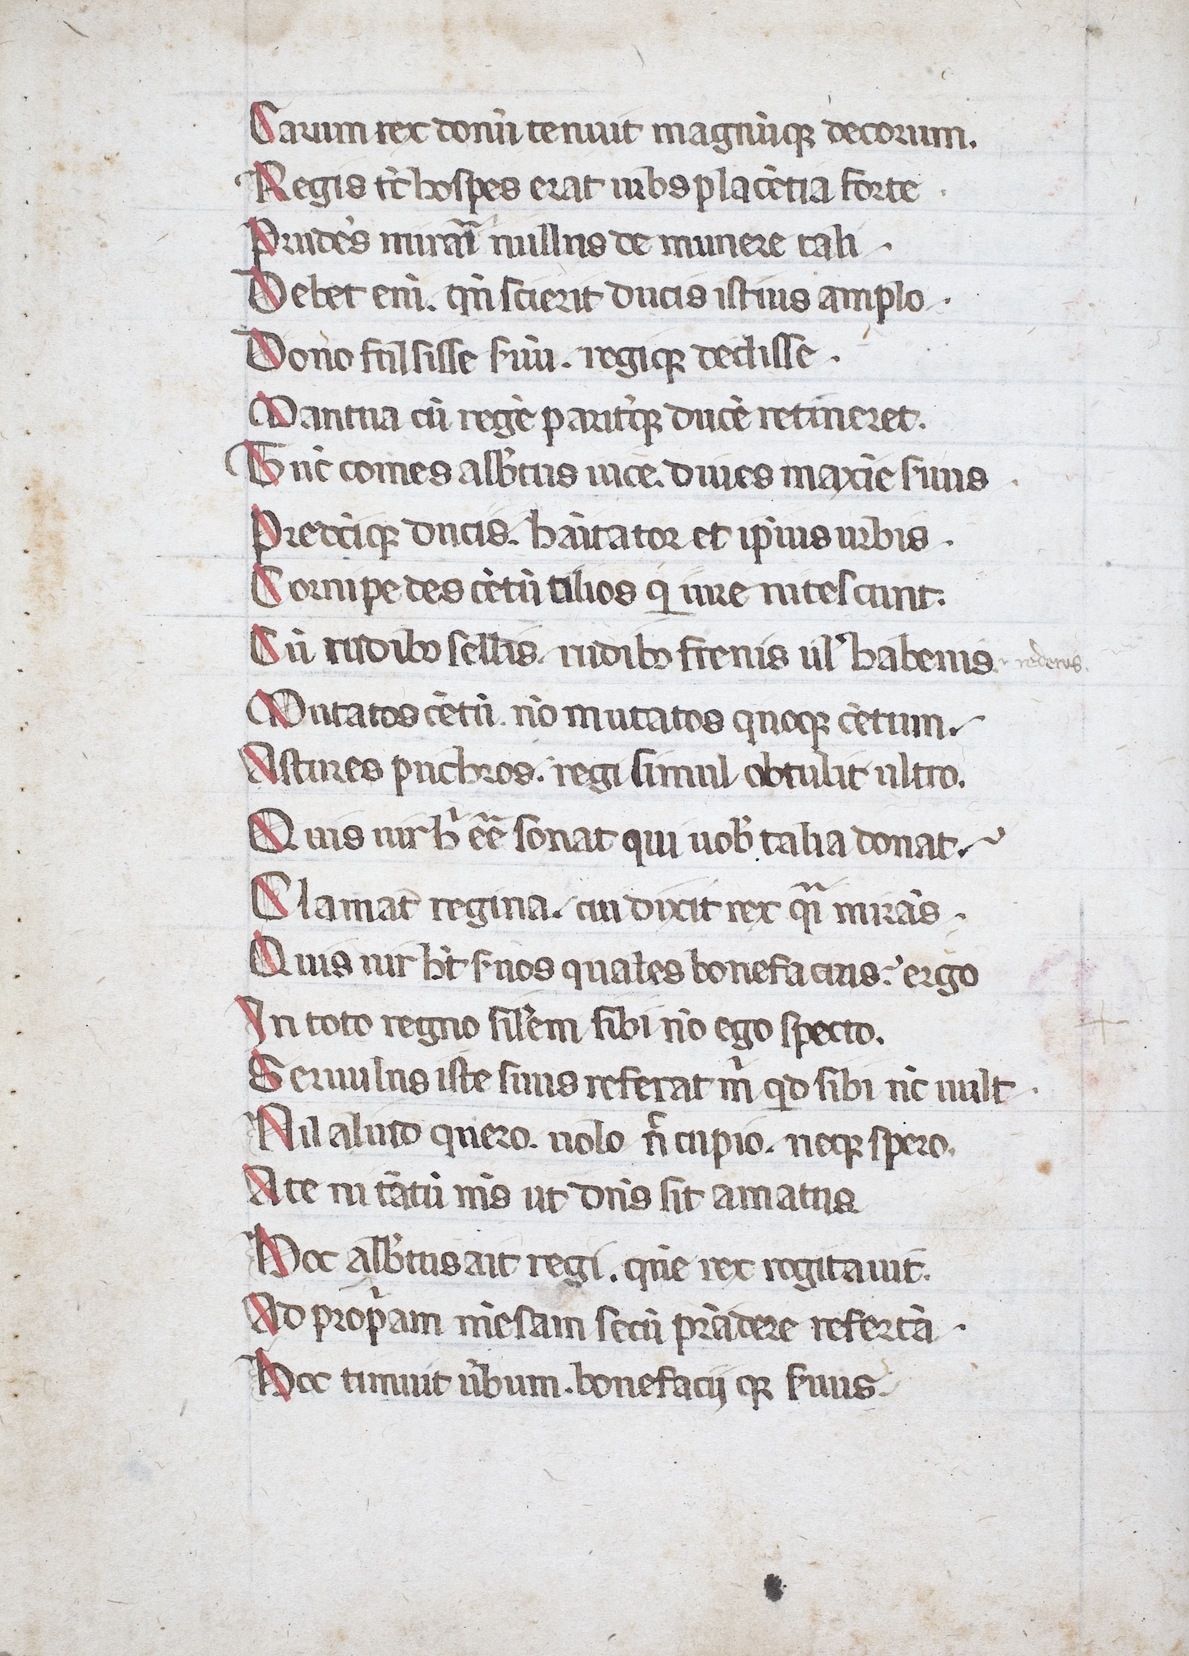 Carum rex donũ tenuit magnũqꝫ decorum.
Regis tc̃ hospes erat urbs placẽtia forte.
Prudẽs miranˀ nullus de munere tali.
Debet enĩ. qñ scierit ducis istius amplo.
Dono fulsisse suũ. regiqꝫ dedisse.
Mantua cũ regẽ paritˀqꝫ ducẽ retineret.
Tũc comes albˀtus uice. diues maxĩe suus.
Predc̃iqꝫ ducis. hãitator et ip̃ius urbis.
Cornipedes cẽtũ alios qˀ iure nitescunt.
Cũ rudibꝰ sellis. rudibꝰ frenis ulˀ habenis.
Mutatos cẽtũ. nõ mutatos quoqꝫ cẽtum.
Astures pucbros. regi simul obtulit ultro.
Quis uir hˀ eẽ sonat qui uobˀ talia donat.
Clamat regina. cui dixit rex qˀ mirãs.
Quis uir hˀt suos quales bonefacius. ergo
In toto regno silˀem sibi nõ ego specto.
Seruulus iste suus referat mˀ qd sibi nc̃ uult.
Nil aliud quero. uolo ñ cupio. neqꝫ spero.
A te ni tãtũ mˀs ut dñs sit amatus
Hoc albˀtus ait regi. quẽ rex rogitauit.
Ad propˀam mẽsam secũ prãdere refertã.
Hoc timuit uˀbum. bonefacij qꝫ suus.